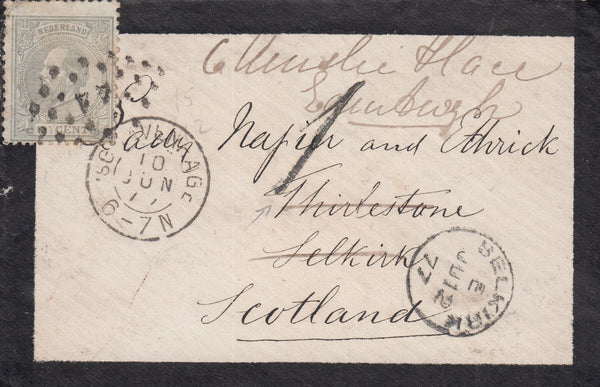 NEDERLAND
CENT
44
6 Ainslie Place
Edinburgh
Napier and Ettrick
Thirlestone
Selkirk
Scotland
10
JUN
77
6-7N
SELKIRK
E
JU12
77